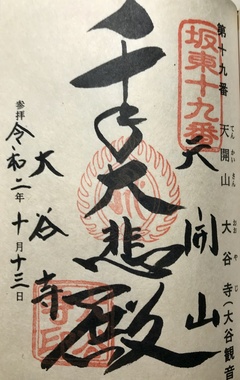 第十九番 天開山 大谷寺(大谷観音
てんかいさん おおやじ
坂東十九番
天開山
千手大悲殿
大谷寺
参拝 令和二年十月十三日